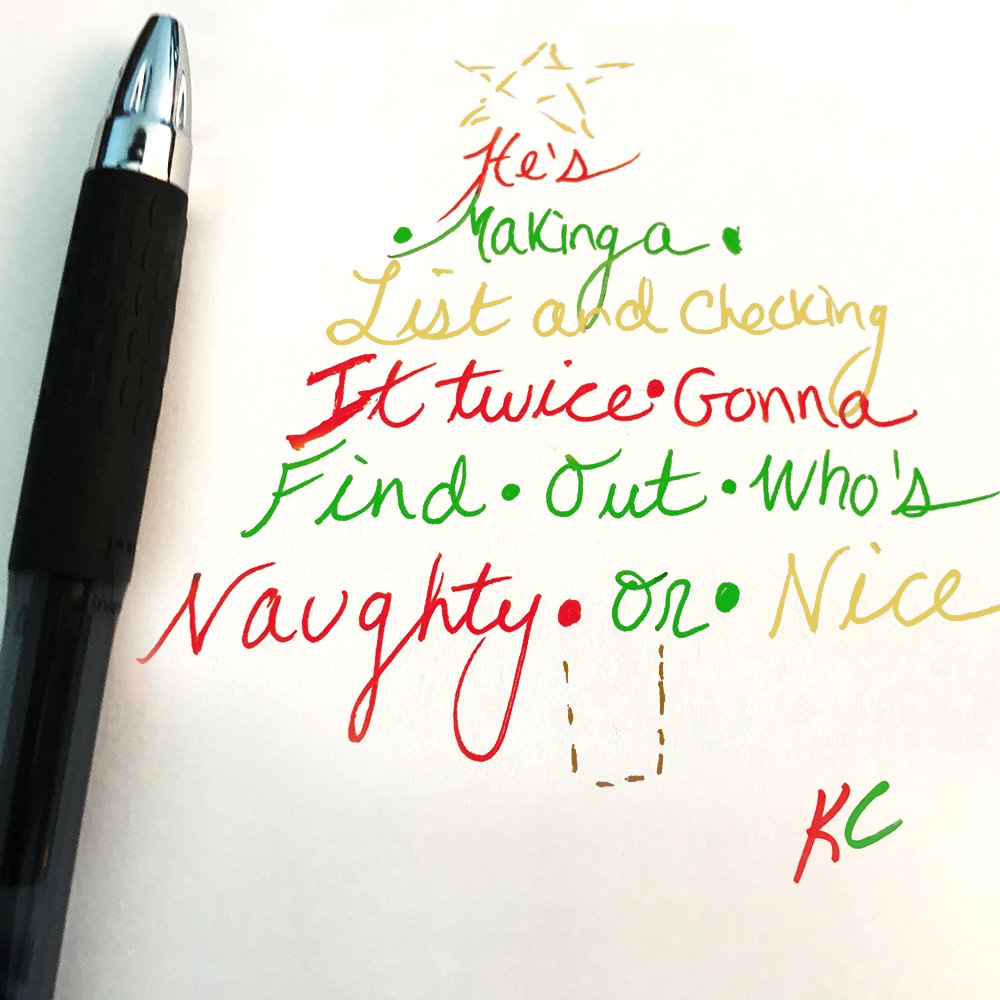 He's
• Making a •
List and checking
It twice • Gonna
Find • Out • Who's
Naughty • or • Nice
KC